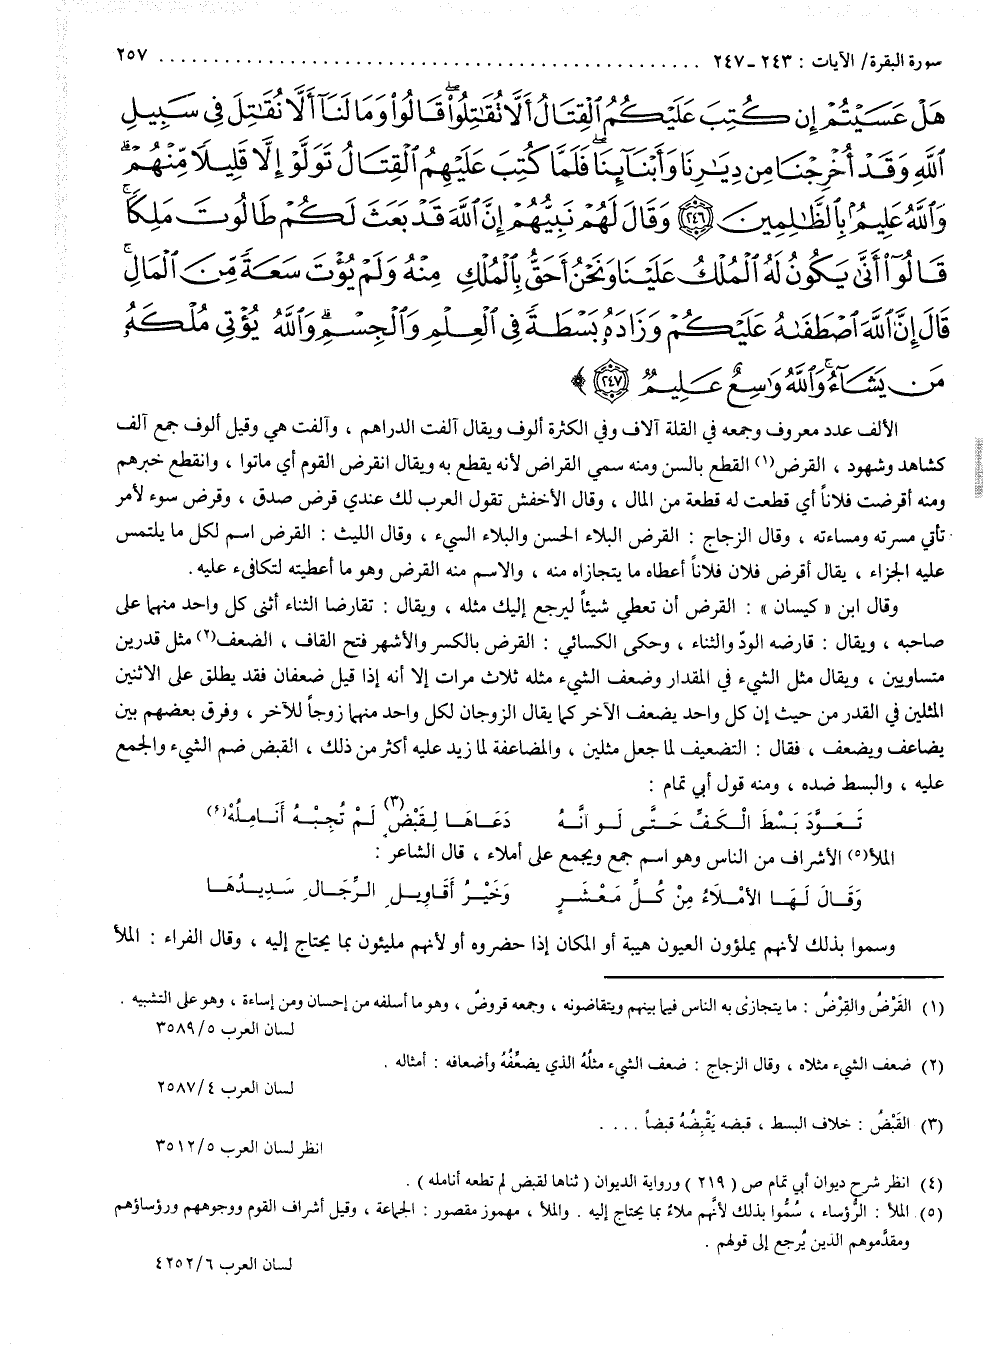 سورة البقرة/ الآيات : ٢٤٣ ـ ٢٤٧ ........................................................ ٢٥٧
هَلْ عَسَيْتُمْ إِن كُتِبَ عَلَيْكُمُ ٱلْقِتَالُ أَلَّا نُقَٰتِلُواْ قَالُواْ وَمَا لَنَآ أَلَّا نُقَٰتِلَ فِى سَبِيلِ
ٱللَّهِ وَقَدْ أُخْرِجْنَا مِن دِيَٰرِنَا وَأَبْنَآئِنَا فَلَمَّا كُتِبَ عَلَيْهِمُ ٱلْقِتَالُ تَوَلَّوْاْ إِلَّا قَلِيلًا مِّنْهُمْ
وَٱللَّهُ عَلِيمٌۢ بِٱلظَّٰلِمِينَ ﴿٢٤٦﴾ وَقَالَ لَهُمْ نَبِيُّهُمْ إِنَّ ٱللَّهَ قَدْ بَعَثَ لَكُمْ طَالُوتَ مَلِكًا
قَالُوٓاْ أَنَّىٰ يَكُونُ لَهُ ٱلْمُلْكُ عَلَيْنَا وَنَحْنُ أَحَقُّ بِٱلْمُلْكِ مِنْهُ وَلَمْ يُؤْتَ سَعَةً مِّنَ ٱلْمَالِ
قَالَ إِنَّ ٱللَّهَ ٱصْطَفَىٰهُ عَلَيْكُمْ وَزَادَهُۥ بَسْطَةً فِى ٱلْعِلْمِ وَٱلْجِسْمِ وَٱللَّهُ يُؤْتِى مُلْكَهُۥ
مَن يَشَآءُ وَٱللَّهُ وَٰسِعٌ عَلِيمٌ ﴿٢٤٧﴾ ﴾
الألف عدد معروف وجمعه في القلة آلاف وفي الكثرة ألوف ويقال آلفت الدراهم ، وآلفت هي وقيل ألوف جمع آلف
كشاهد وشهود ، القرض(١) القطع بالسن ومنه سمي القراض لأنه يقطع به ويقال انقرض القوم أي ماتوا ، وانقطع خبرهم
ومنه أقرضت فلاناً أي قطعت له قطعة من المال ، وقال الأخفش تقول العرب لك عندي قرض صدق ، وقرض سوء لأمر
تأتي مسرته ومساءته ، وقال الزجاج : القرض البلاء الحسن والبلاء السيء ، وقال الليث : القرض اسم لكل ما يلتمس
عليه الجزاء ، يقال أقرض فلان فلاناً أعطاه ما يتجازاه منه ، والاسم منه القرض وهو ما أعطيته لتكافىء عليه .
وقال ابن « كيسان » : القرض أن تعطي شيئاً ليرجع إليك مثله ، ويقال : تقارضا الثناء أثنى كل واحد منهما على
صاحبه ، ويقال : قارضه الودّ والثناء ، وحكى الكسائي : القرض بالكسر والأشهر فتح القاف ، الضعف(٢) مثل قدرين
متساويين ، ويقال مثل الشيء في المقدار وضعف الشيء مثله ثلاث مرات إلا أنه إذا قيل ضعفان فقد يطلق على الاثنين
المثلين في القدر من حيث إن كل واحد يضعف الآخر كما يقال الزوجان لكل واحد منهما زوجاً للآخر ، وفرق بعضهم بين
يضاعف ويضعف ، فقال : التضعيف لما جعل مثلين ، والمضاعفة لما زيد عليه أكثر من ذلك ، القبض ضم الشيء والجمع
عليه ، والبسط ضده ، ومنه قول أبي تمام :
تَعَوَّدَ بَسْطَ الْكَفِّ حَتَّى لَو انَّهُ دَعَاهَا لِقَبْضٍ(٣) لَمْ تُجِبْهُ أَنَامِلُهْ(٤)
الملأ(٥) الأشراف من الناس وهو اسم جمع ويجمع على أملاء ، قال الشاعر :
وَقَالَ لَهَا الأمْلَاءُ مِنْ كُلِّ مَعْشَرٍ وَخَيْرُ أَقَاوِيلِ الرِّجَالِ سَدِيدُهَا
وسموا بذلك لأنهم يملؤون العيون هيبة أو المكان إذا حضروه أو لأنهم مليئون بما يحتاج إليه ، وقال الفراء : الملأ
(١) القَرْضُ والقِرْضُ : ما يتجازىٰ به الناس فيما بينهم ويتقاضونه ، وجمعه قروضٌ ، وهو ما أسلفه من إحسان ومن إساءة ، وهو على التشبيه .
لسان العرب ٣٥٨٩/٥
(٢) ضعف الشيء مثلاه ، وقال الزجاج : ضعف الشيء مثلُهُ الذي يضعِّفُهُ وأضعافه : أمثاله .
لسان العرب ٢٥٨٧/٤
(٣) القَبْضُ : خلاف البسط ، قبضه يَقْبِضُهُ قبضاً . . . .
انظر لسان العرب ٣٥١٢/٥
(٤) انظر شرح ديوان أبي تمام ص ( ٢١٩ ) ورواية الديوان ( ثناها لقبض لم تطعه أنامله ) .
(٥) الملأ : الرُّؤساء ، سُمُّوا بذلك لأنَّهم ملاءٌ بما يحتاج إليه . والملأ ، مهموز مقصور : الجماعة ، وقيل أشراف القوم ووجوههم ورؤساؤهم
ومقدَّموهم الذين يُرجع إلى قولهم .
لسان العرب ٤٢٥٢/٦